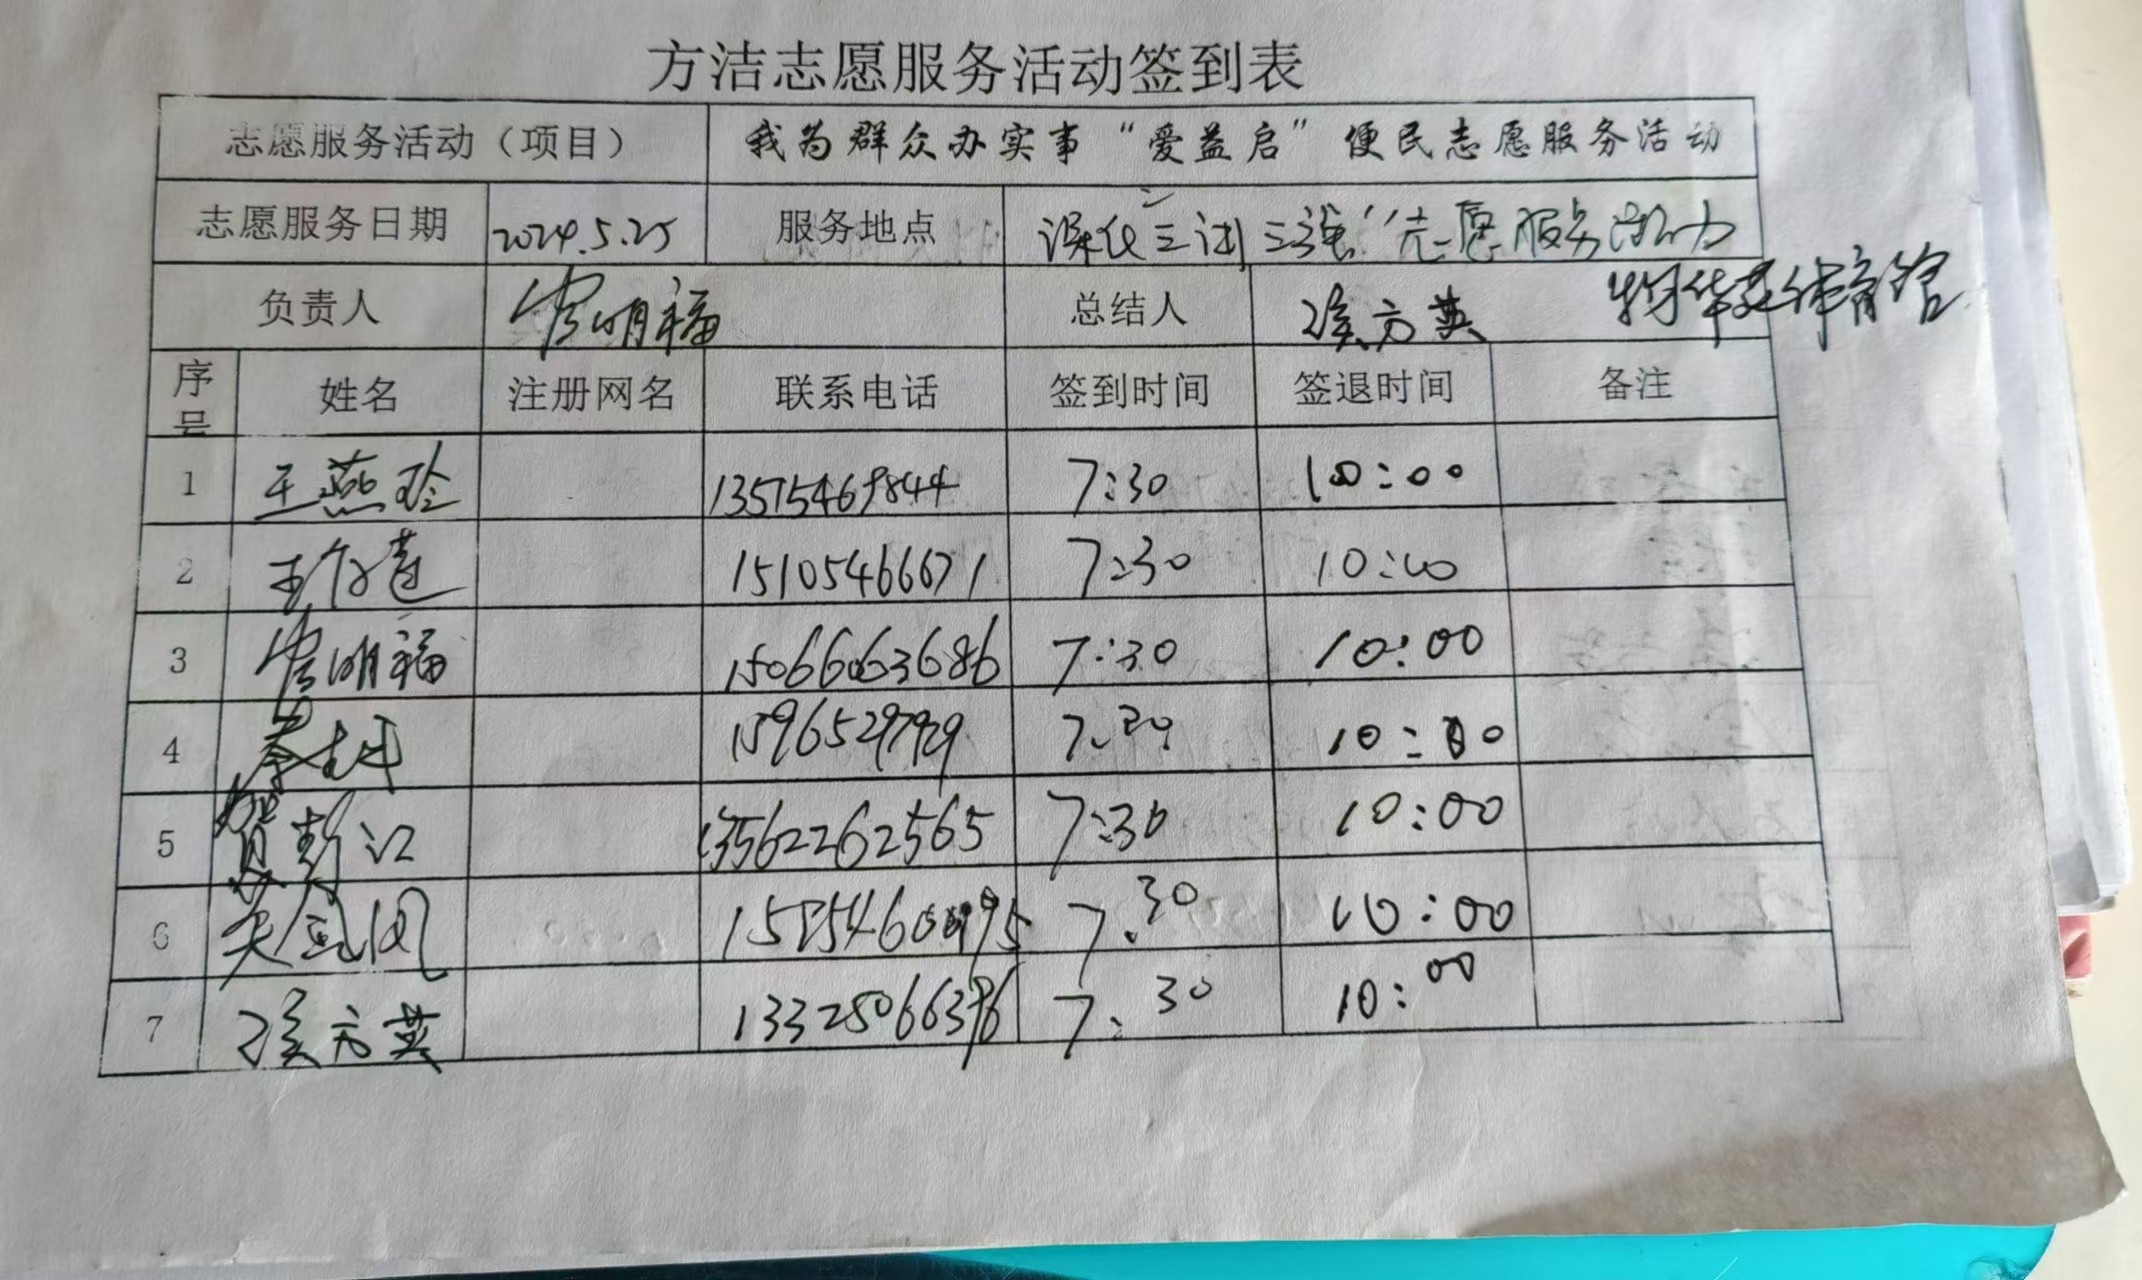 方洁志愿服务活动签到表
志愿服务活动（项目） 我为群众办实事“爱益启”便民志愿服务活动
志愿服务日期 2024.5.25 服务地点 深化三 三 志愿服务活动
体育馆
负责人 明福 总结人 侯方英
序号 姓名 注册网名 联系电话 签到时间 签退时间 备注
1 王燕玲 13515469844 7:30 10:00
2 15105466671 7:30 10:00
3 明福 15066063686 7:30 10:00
4 7:30 10:00
5 贺彭江 13562262565 7:30 10:00
6 7:30 10:00
7 侯方英 7:30 10:00